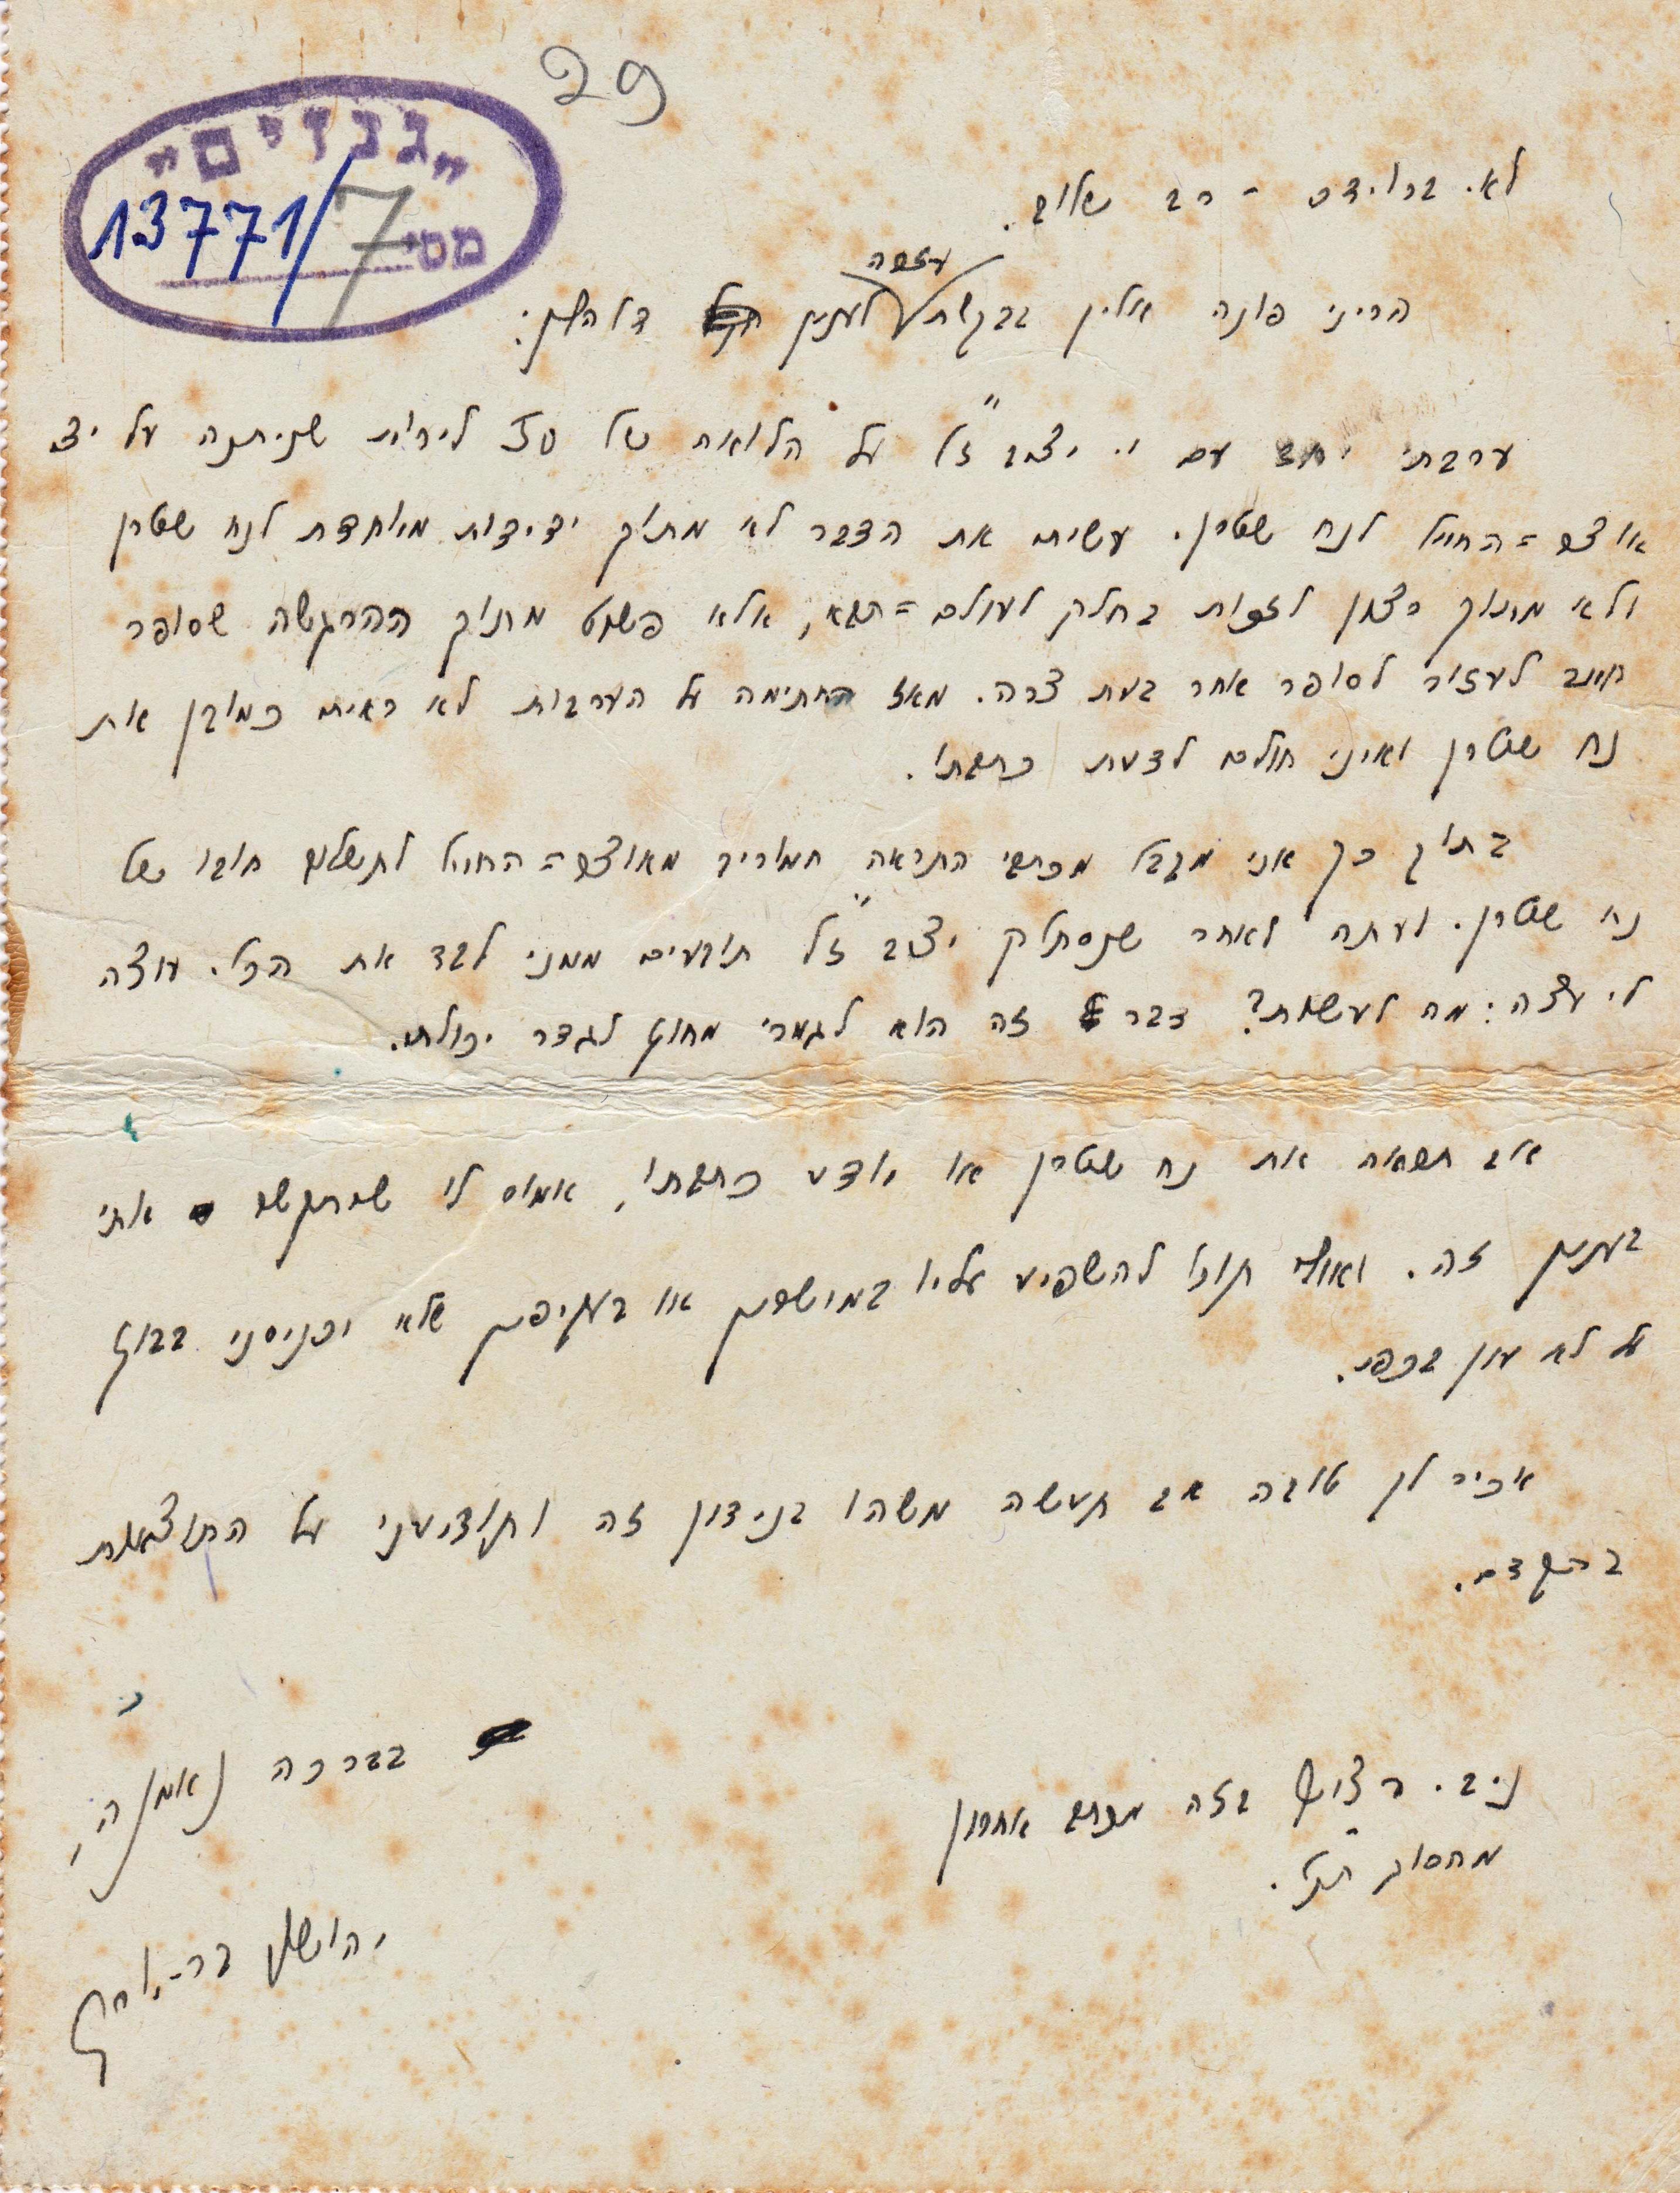 29
"גנזים"
מס' 13771/7
לא. ברוידס - רב שלום.
עזרה
הריני פונה אליך בבקשת לענין דלהלן:
ערבתי יחד עם י. יצב ז"ל על הלואה של 50 לירות שניתנה על יד
אוצר=החייל לנח שטרן. עשיתי את הדבר לא מתוך ידידות מיוחדת לנח שטרן
ולא מתוך רצון לזכות בחלק לעולם=הבא, אלא פשוט מתוך ההרגשה שסופר
חייב לעזור לסופר אחר בעת צרה. מאז החתימה על הערבות לא ראיתי כמובן את
נח שטרן ואיני חולם לדעת כתבתו.
בתוך כך אני מקבל מכתבי התראה חמורים מאוצר=החייל לתשלום חובו של
נח שטרן. ועתה לאחר שנסתלק יצב ז"ל תובעים ממני לבד את הכל. עוצה
לי עצה: מה לעשות? דבר זה הוא לגמרי מחוץ לגדר יכולתי.
אם תראה את נח שטרן או תדע כתבתו, אמור לו שיתקשר אתי
בענין זה. ואולי תוכל להשפיע עליו במישרין או בעקיפין שלא יכניסני בבוץ
על לא עון בכפי.
אכיר לך טובה אם תעשה משהו בנידון זה ותודיעני על התוצאות
בהקדם.
בברכה נאמנה,
נ.ב. רצוף בזה מכתב אחרון
מהסוג הנ"ל.
יהושע בר-יוסף